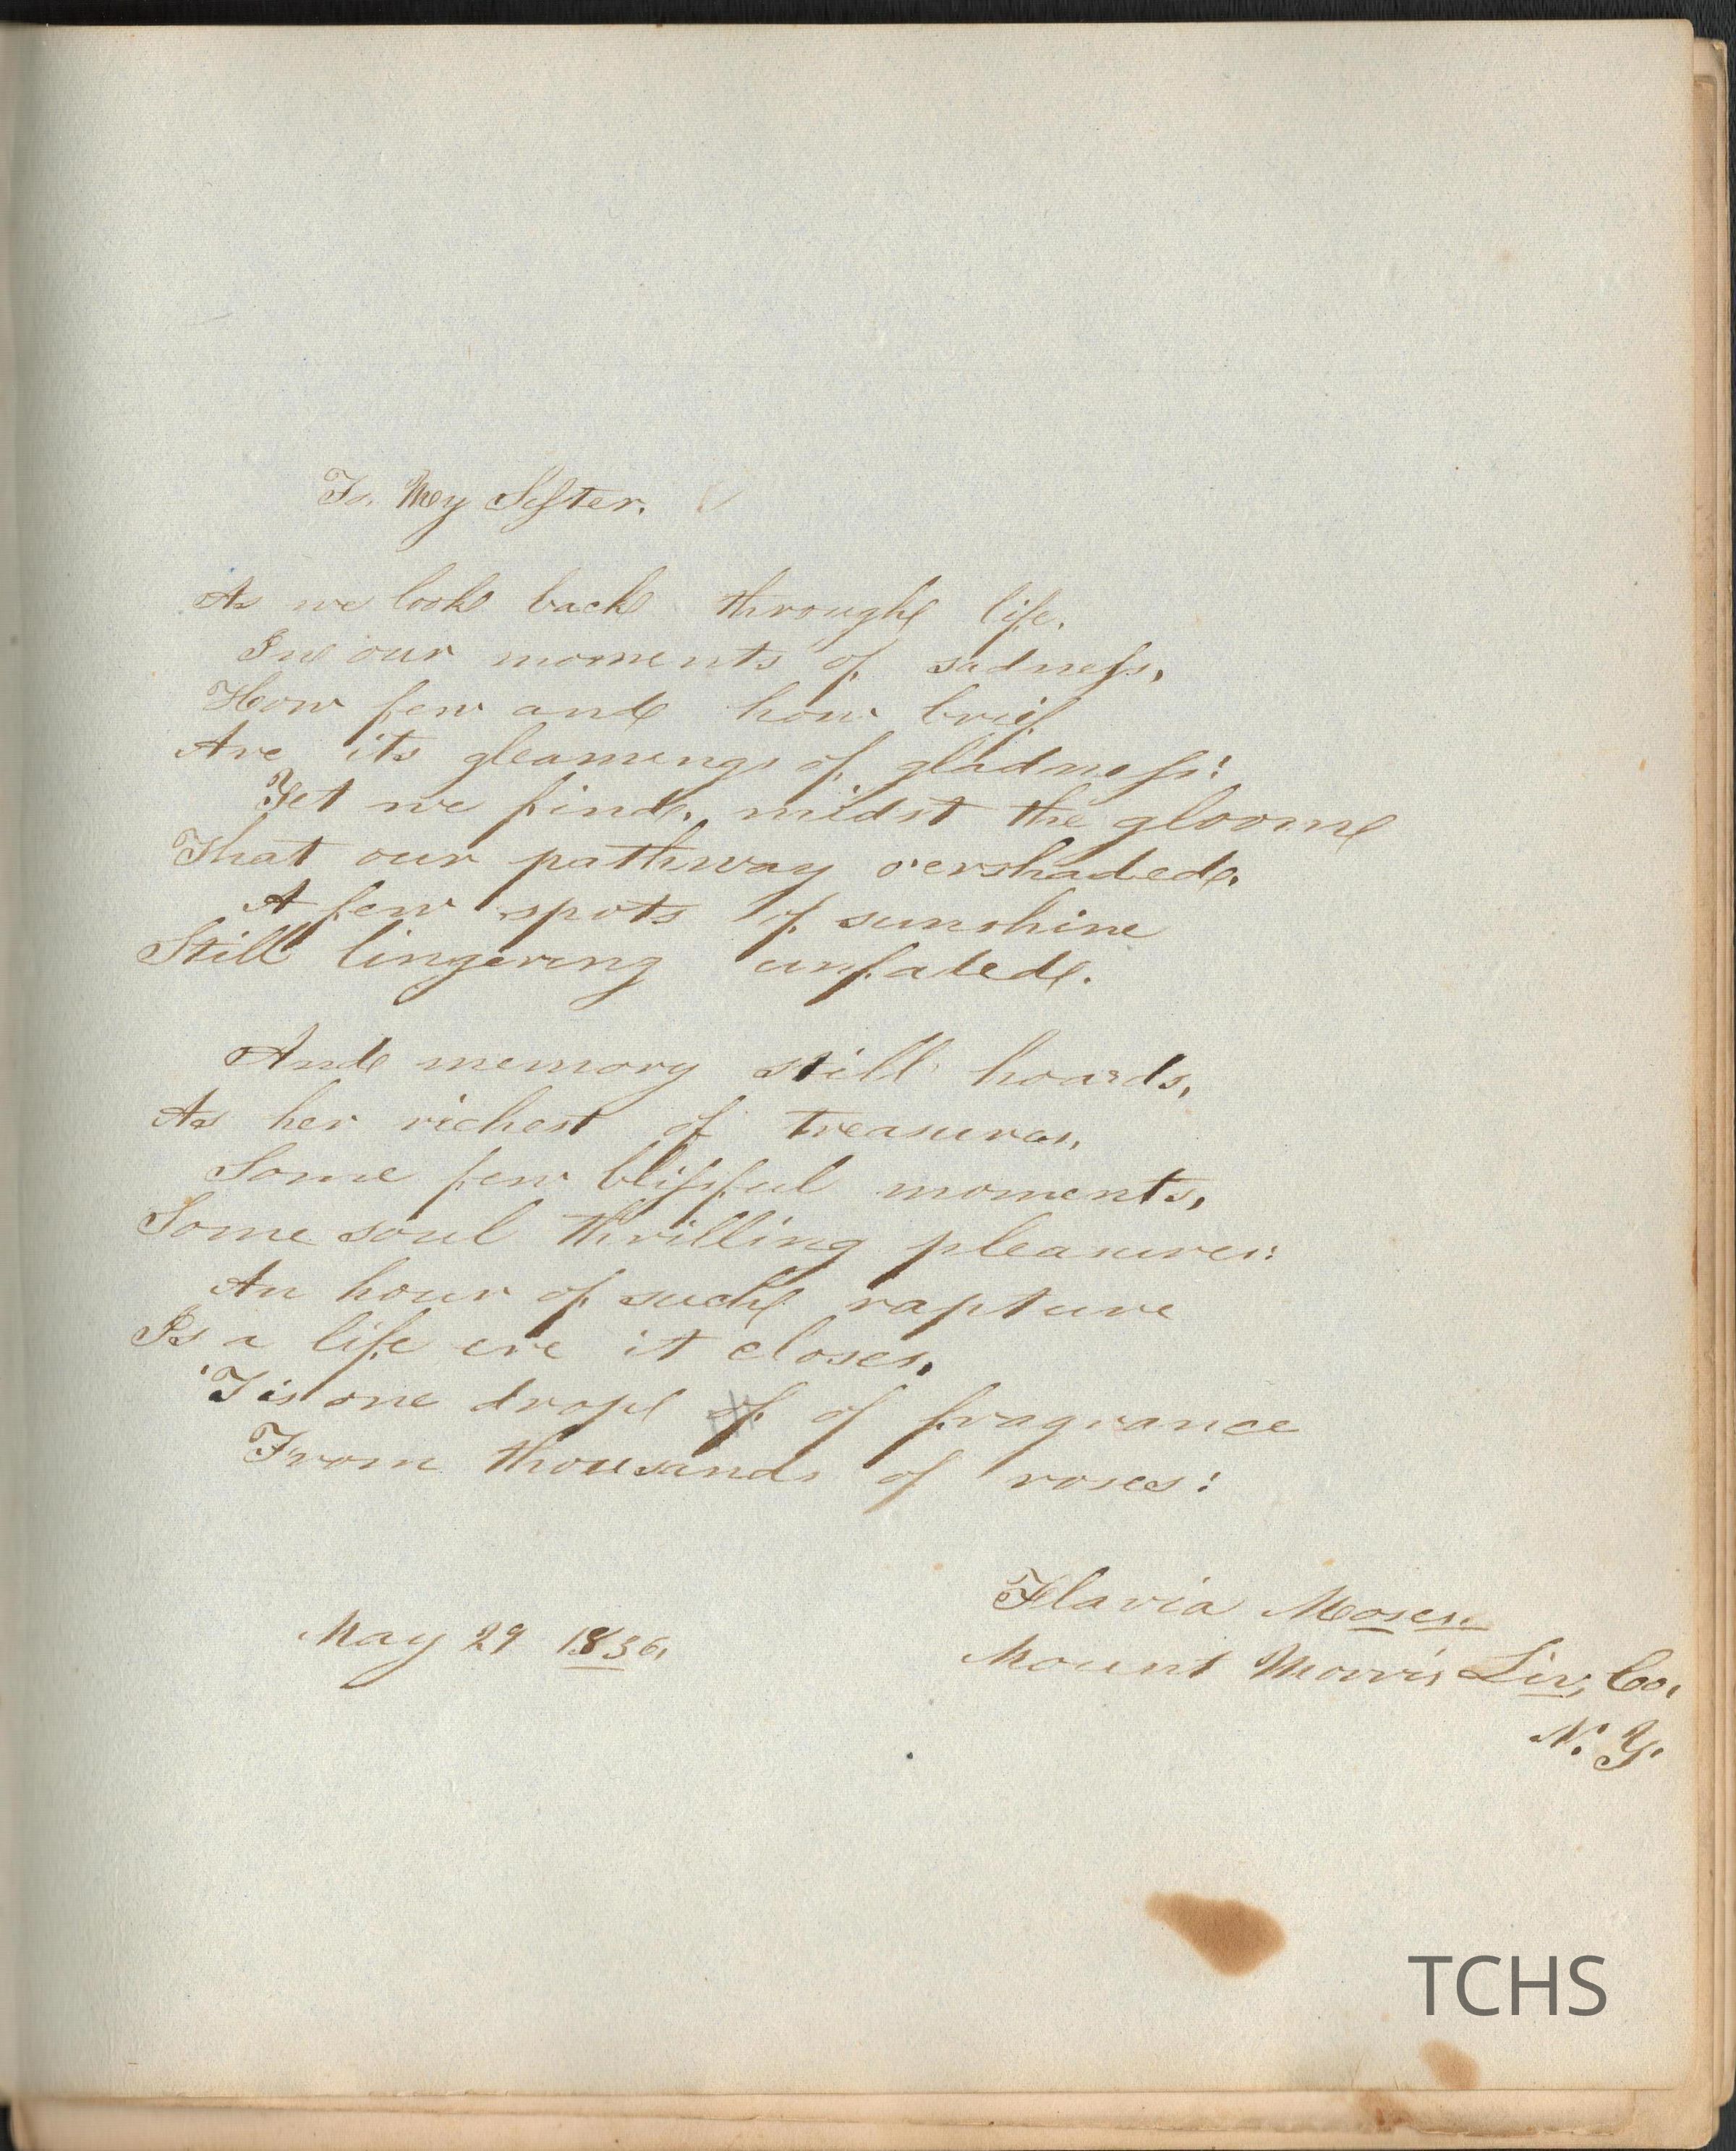 To. My Sister.
As we look back through life.
In our moments of sadness,
How few and how brief
Are its gleamings of gladness!
Yet we find, midst the gloom
That our pathway o'ershaded,
A few spots of sunshine
Still lingering unfaded.
And memory still hoards,
As her richest of treasures,
Some few blissful moments,
Some soul thrilling pleasures:
An hour of such rapture
Is a life ere it closes,
'Tis one drop of of fragrance
From thousands of roses!
Flavia Moses.
May 29 1836,
Mount Morris Liv, Co,
N. Y.
TCHS